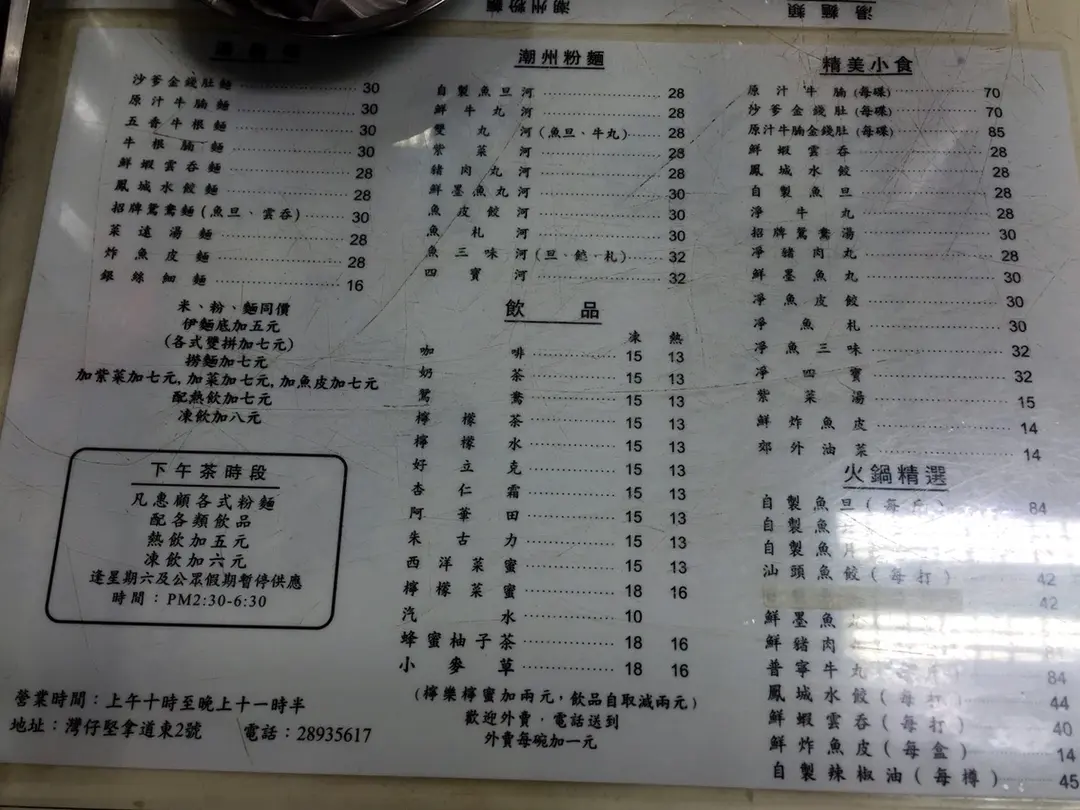 潮州粉麵
湯麵類
沙爹金錢肚麵 30
原汁牛腩麵 30
五香牛根麵 30
牛根腩麵 30
鮮蝦雲吞麵 28
鳳城水餃麵 28
招牌鴛鴦麵(魚旦、雲吞) 30
菜遠湯麵 28
炸魚皮麵 28
銀絲細麵 16
米、粉、麵同價
伊麵底加五元
(各式雙拼加七元)
撈麵加七元
加紫菜加七元,加菜加七元,加魚皮加七元
配熱飲加七元
凍飲加八元
下午茶時段
凡惠顧各式粉麵
配各類飲品
熱飲加五元
凍飲加六元
逢星期六及公眾假期暫停供應
時間：PM2:30-6:30
營業時間：上午十時至晚上十一時半
地址：灣仔堅拿道東2號 電話：28935617
潮州粉麵
自製魚旦河 28
鮮牛丸河 28
雙丸河(魚旦、牛丸) 28
紫菜河 28
豬肉丸河 28
鮮墨魚丸河 30
魚皮餃河 30
魚札河 30
魚三味河(旦、餃、札) 32
四寶河 32
飲品
凍 熱
咖啡 15 13
奶茶 15 13
鴛鴦 15 13
檸檬茶 15 13
檸檬水 15 13
好立克 15 13
杏仁霜 15 13
阿華田 15 13
朱古力 15 13
西洋菜蜜 15 13
檸檬菜蜜 18 16
汽水 10
蜂蜜柚子茶 18 16
小麥草 18 16
(檸樂檸蜜加兩元，飲品自取減兩元)
歡迎外賣，電話送到
外賣每碗加一元
精美小食
原汁牛腩(每碟) 70
沙爹金錢肚(每碟) 70
原汁牛腩金錢肚(每碟) 85
鮮蝦雲吞 28
鳳城水餃 28
自製魚旦 28
淨牛丸 28
招牌鴛鴦湯 30
淨豬肉丸 28
鮮墨魚丸 30
淨魚皮餃 30
淨魚札 30
淨魚三味 32
淨四寶 32
紫菜湯 15
鮮炸魚皮 14
郊外油菜 14
火鍋精選
自製魚旦(每斤) 84
自製魚
自製魚片
汕頭魚餃(每打) 42
42
鮮墨魚
鮮豬肉
普寧牛丸 84
鳳城水餃(每打) 44
鮮蝦雲吞(每打) 40
鮮炸魚皮(每盒) 14
自製辣椒油(每樽) 45